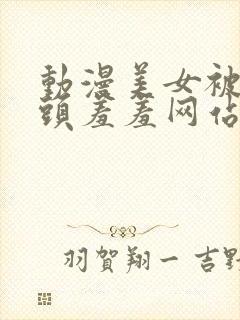 動漫美女被
頭羞羞网佔
羽賀翔一 吉野